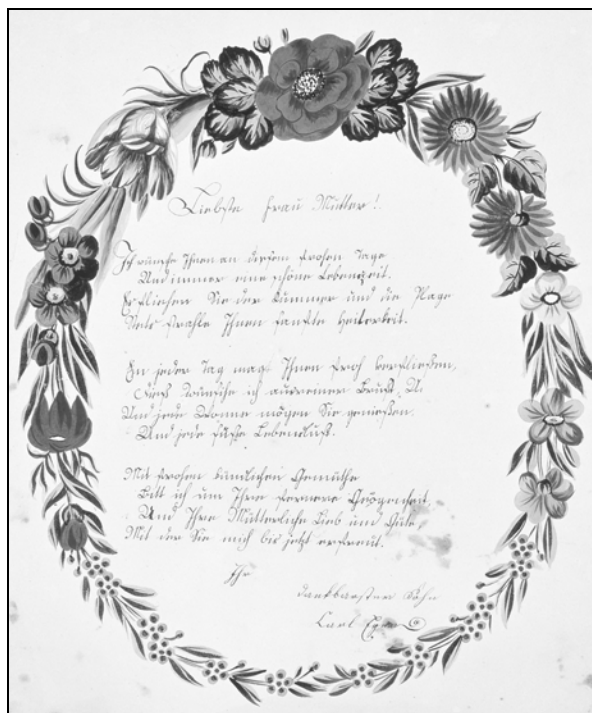 Liebste Frau Mutter!
Ich wünsche Ihnen an diesem frohen Tage
Und immer eine schöne Lebenszeit.
Es fliehen Sie der Kummer und die Plage
Stets strahle Ihnen sanfte Heiterkeit.
Ein jeder Tag mag Ihnen froh verfließen,
Dieß wünsche ich aus reiner Brust,
Und jede Wonne mögen Sie genießen
Und jede süße Lebenslust.
Mit frohen kindlichen Gemüthe
Bitt ich um Ihre fernere Gewogenheit
Und Ihre Mütterliche Lieb und Güte,
Mit der Sie mich bis jetzt erfreut.
Ihr
dankbarster Sohn
Carl